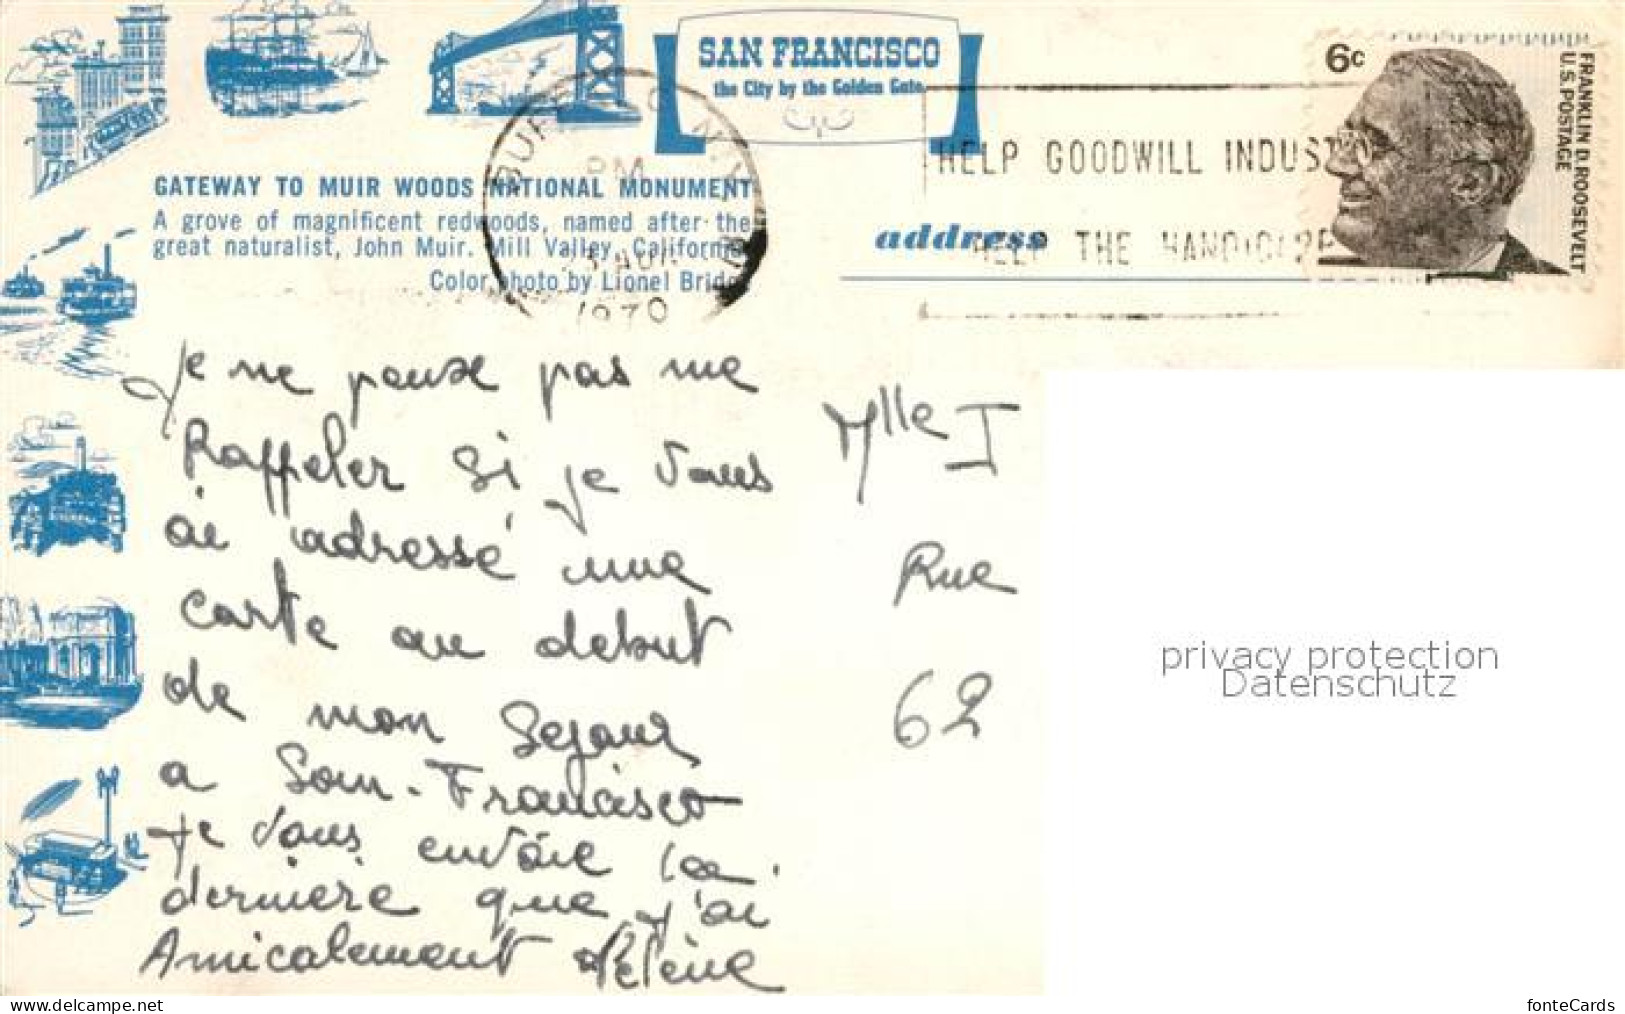 SAN FRANCISCO
the City by the Golden Gate
6c
FRANKLIN D. ROOSEVELT
U.S. POSTAGE
N.Y.
PM
1970
HELP GOODWILL INDUST
HELP THE HANDICAPP
GATEWAY TO MUIR WOODS NATIONAL MONUMENT
A grove of magnificent redwoods, named after the
great naturalist, John Muir. Mill Valley, California
Color photo by Lionel Bridge
address
Je ne pense pas me
Rappeler si je vous
ai adressé une
carte au debut
de mon Sejour
a San-Francisco
je vous envoie la
derniere que j'ai
Amicalement Hélène
Mlle I
Rue
62
privacy protection
Datenschutz
www.delcampe.net
fonteCards